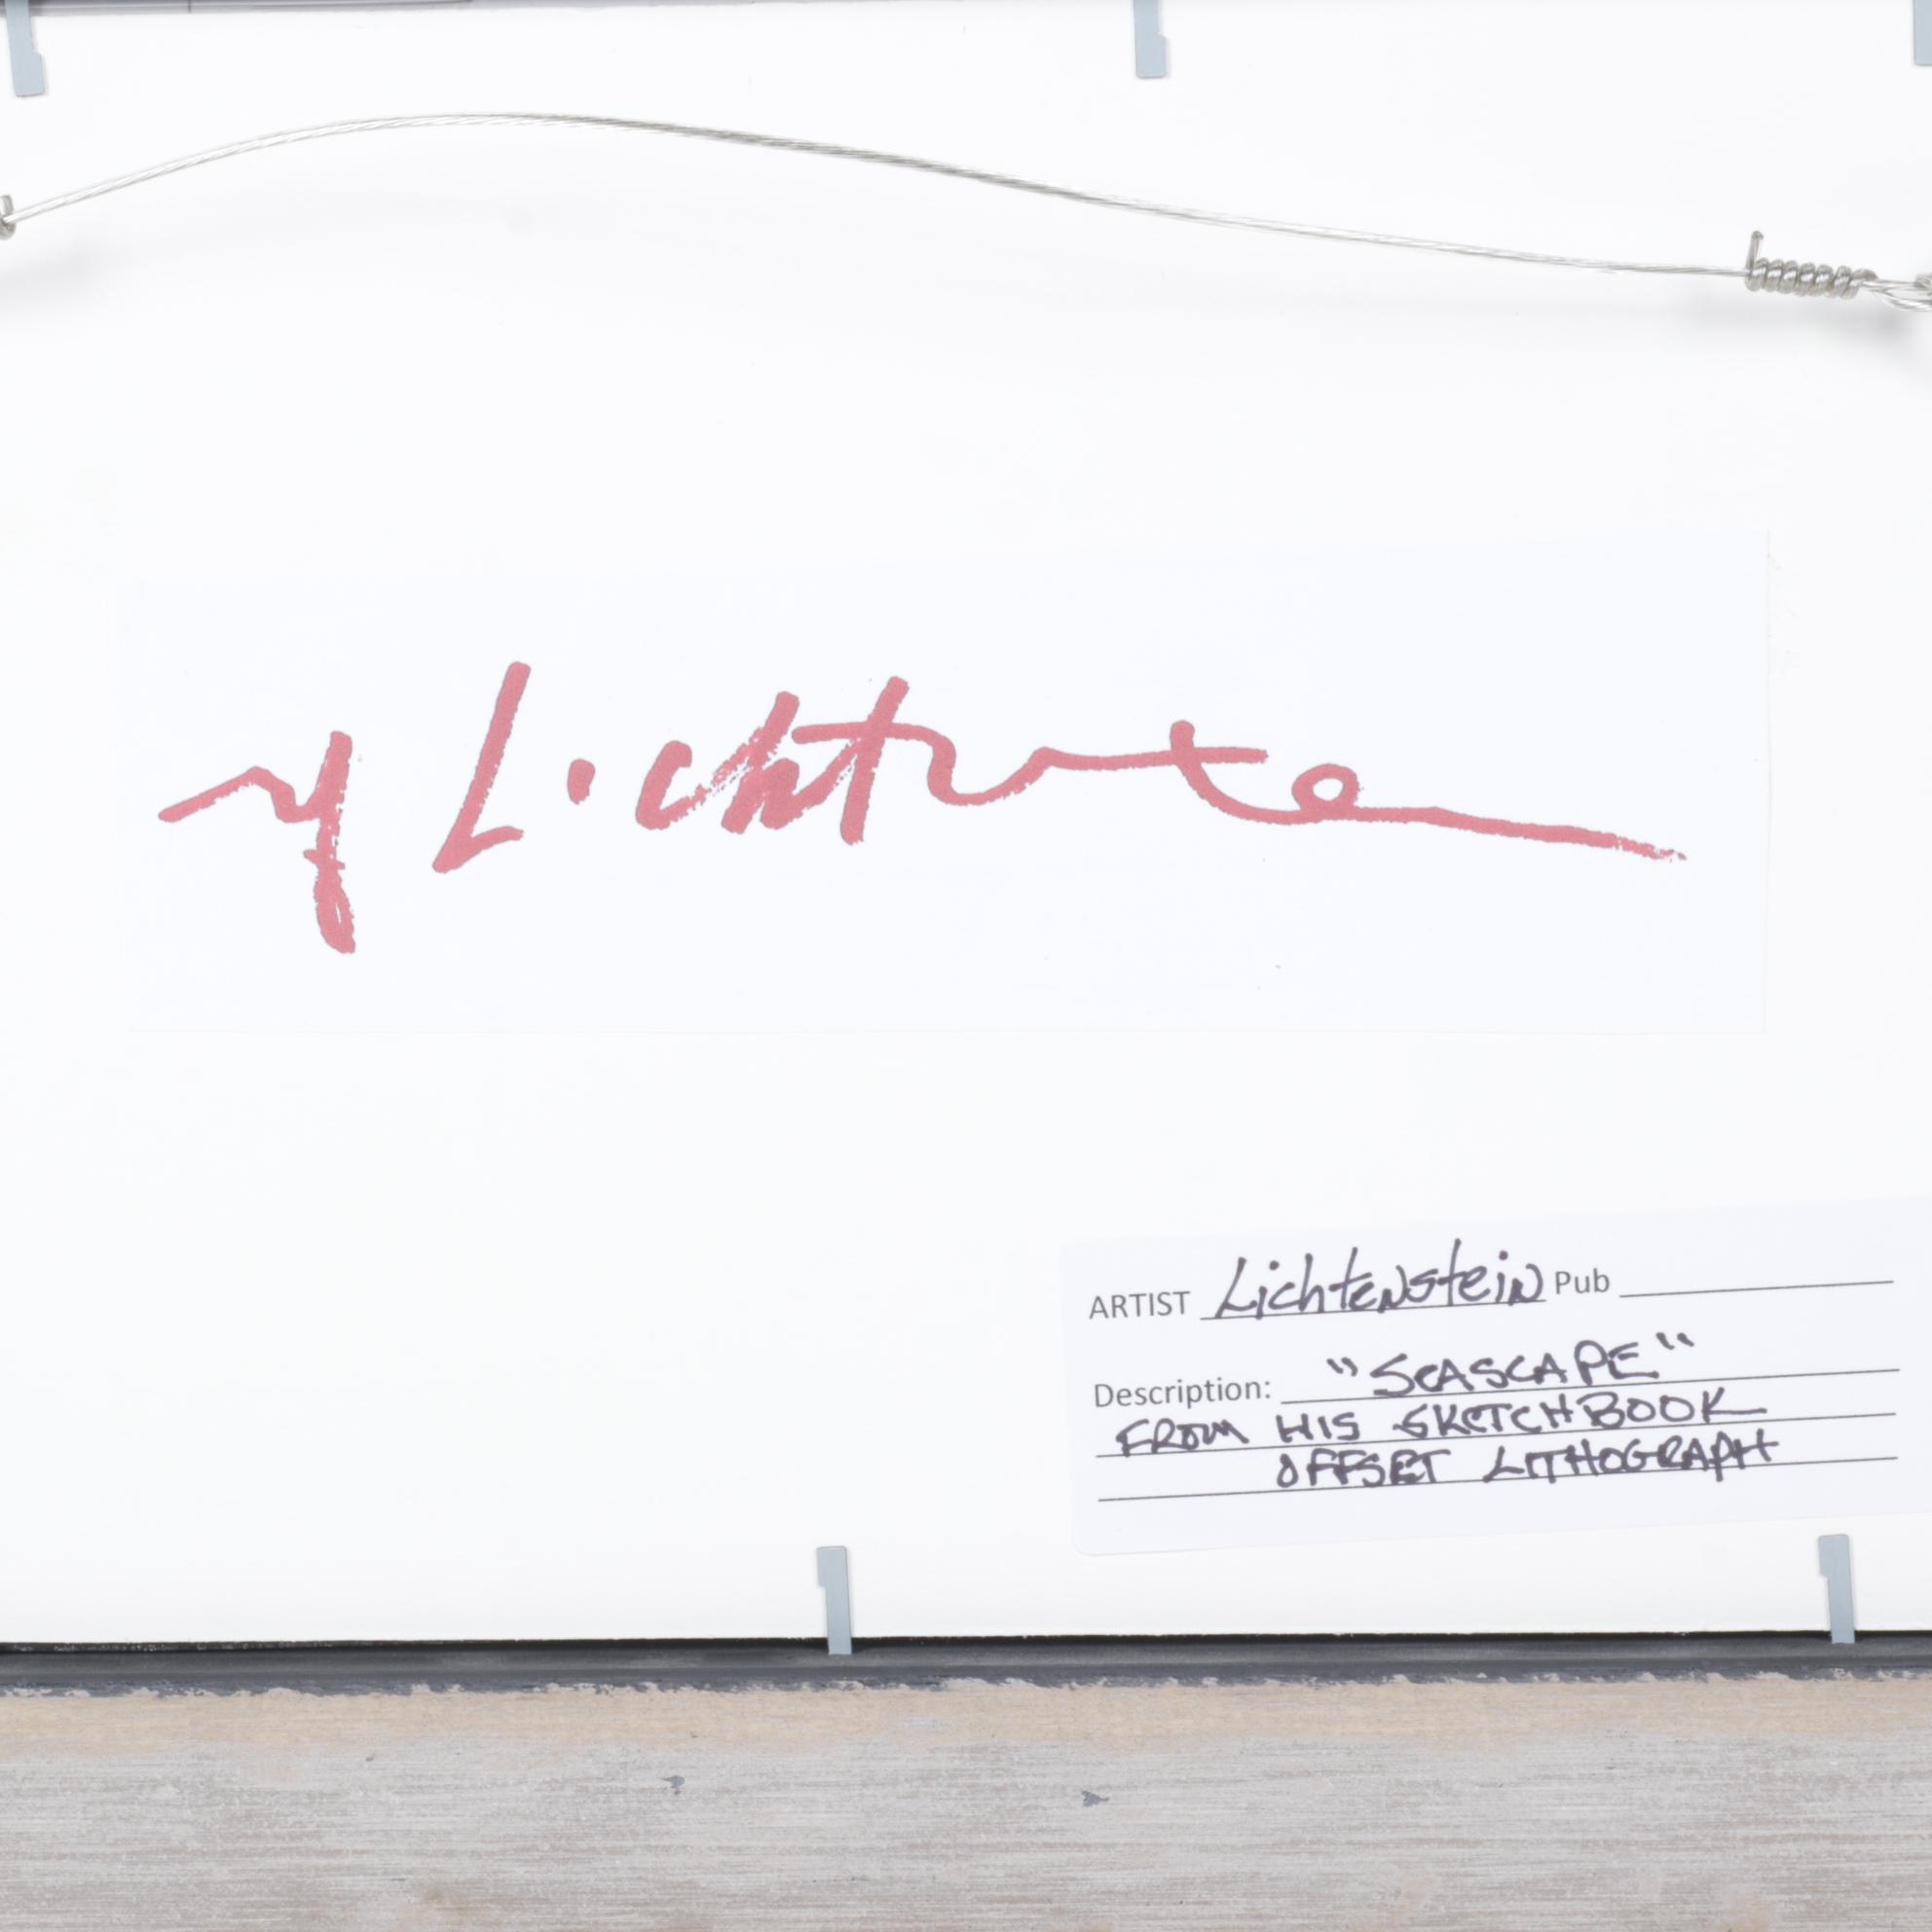 y Lichtenstein
ARTIST Lichtenstein Pub
Description: "SEASCAPE"
FROM HIS SKETCHBOOK
OFFSET LITHOGRAPH